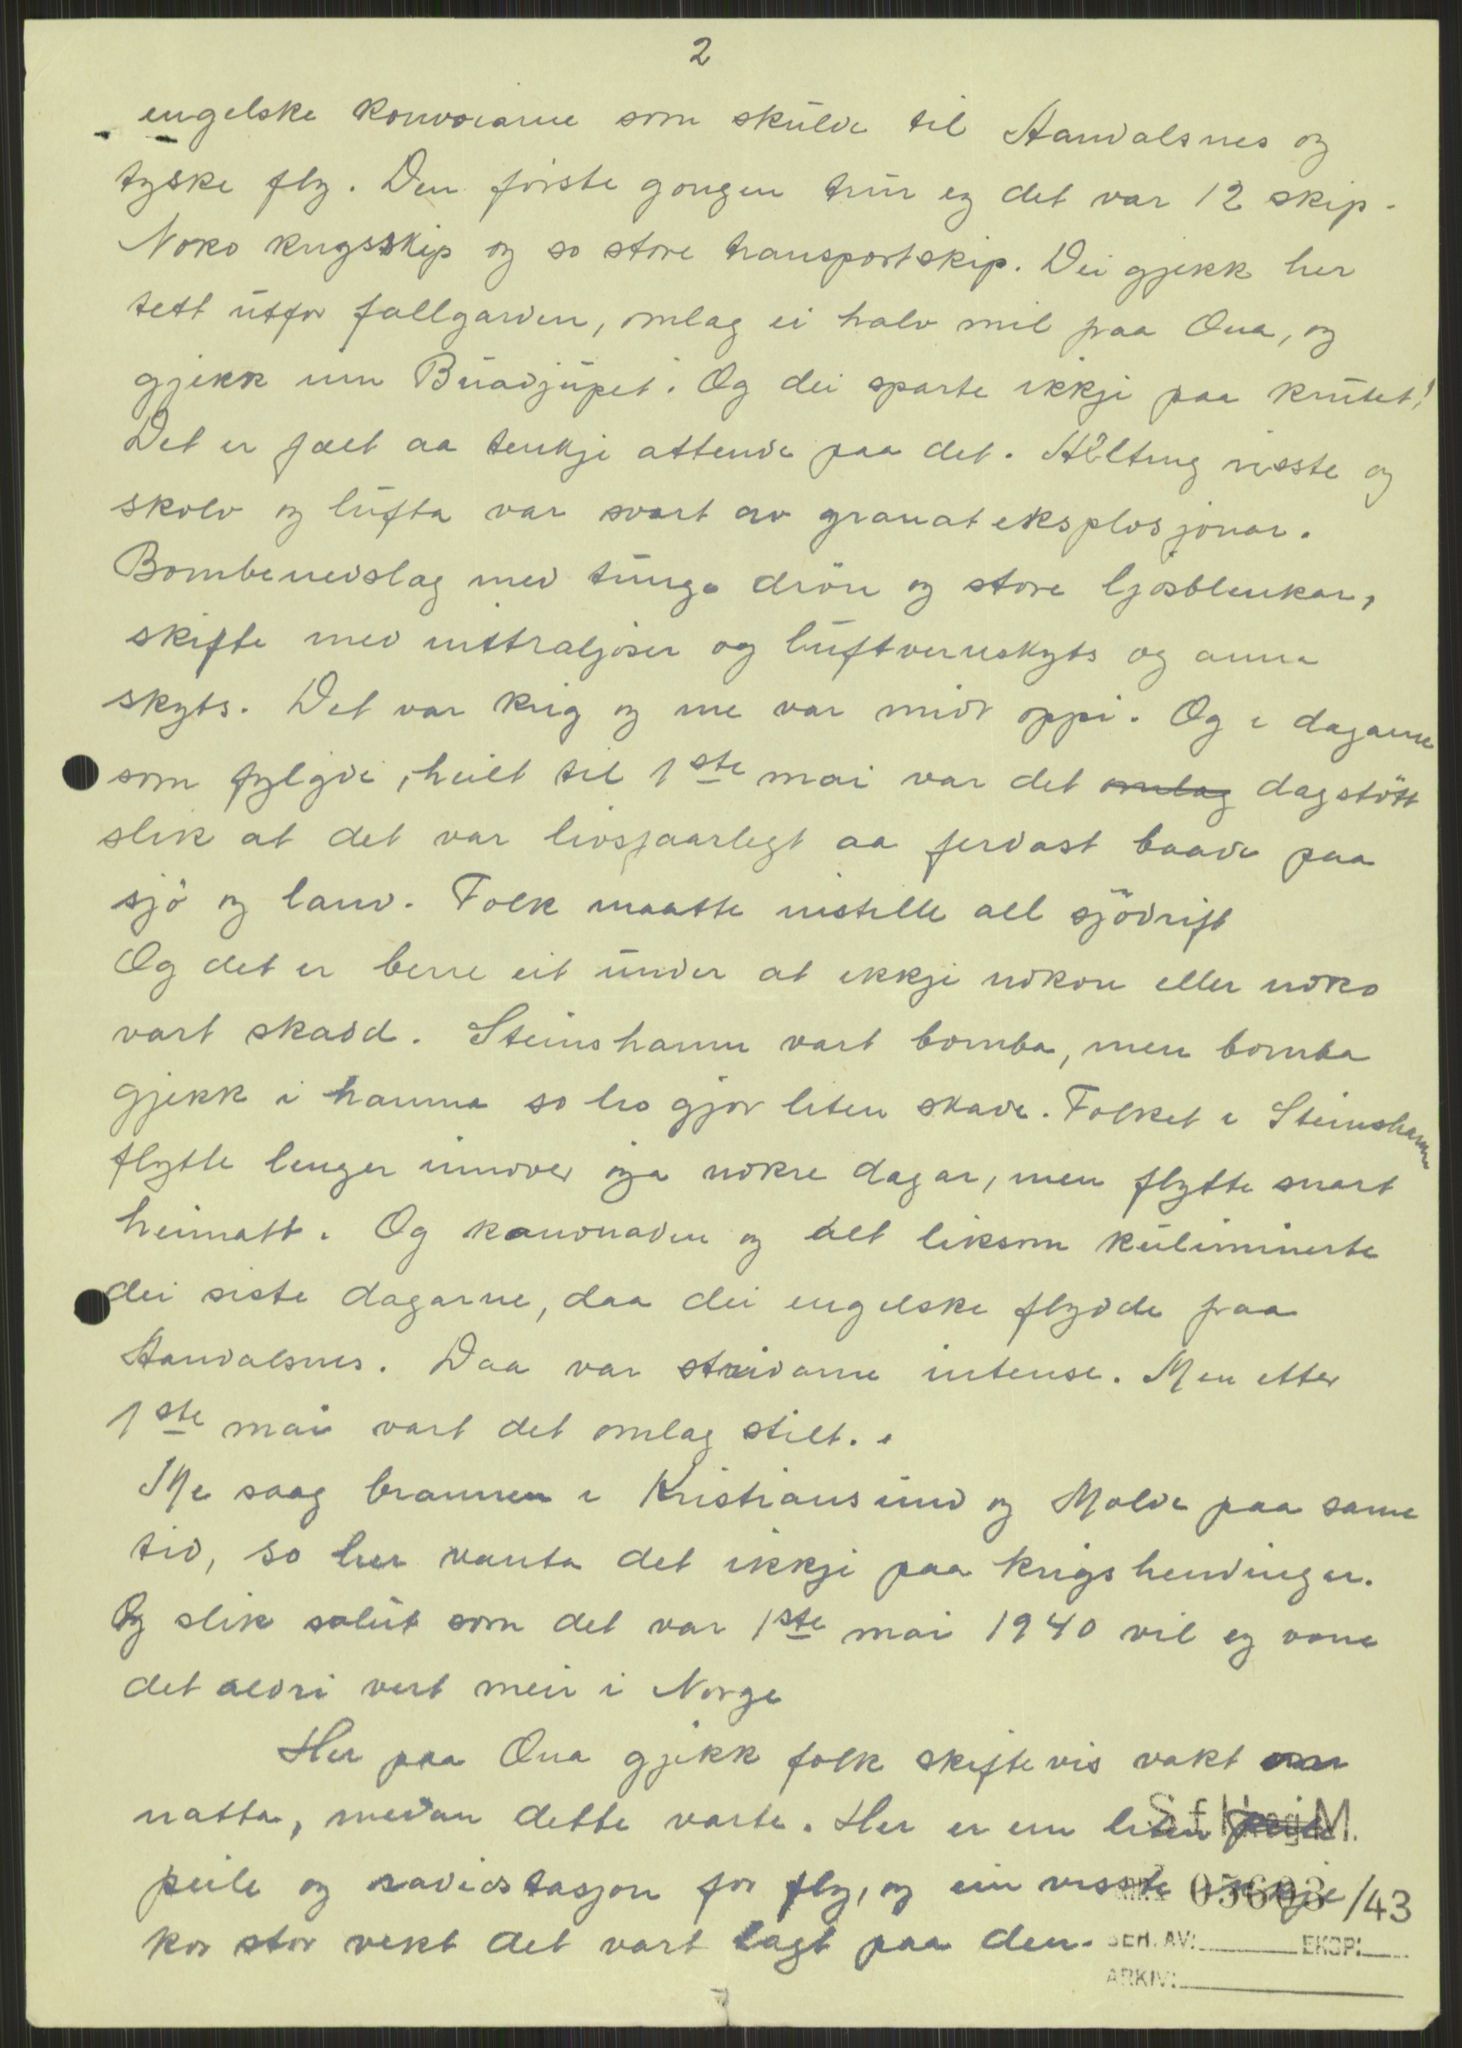 2
engelske konvoiarne som skulde til Aandalsnes og
tyske fly. Den förste gongen trur eg det var 12 skip.
Noko krigsskip og so store transportskip. Dei gjekk her
tett utfor fallgarden, omlag ei halv mil paa Ona, og
gjekk inn Buadjupet. Og dei sparte ikkje paa krutet!
Det er fælt aa tenkje attende paa det. Allting risste og
skolv og lufta var svart av granateksplosjonar.
Bombenedslag med tunge drön og store ljosblenkar,
skifte med mittraljöser og luftvernskyts og anna
skyts. Det var krig og me var midt oppi. Og i dagarne
som fylgde, heilt til 1ste mai var det omlag dagstött
slik at det var livsfaarlegt aa ferdast baade paa
sjö og land. Folk maatte instille all sjödrift
Og det er berre eit under at ikkje nokon eller noko
vart skadd. Steinshamn vart bomba, men bomba
gjekk i hamna so ho gjor liten skade. Folket i Steinshamn
flytte lenger innover öya nokre dagar, men flytte snart
heimatt. Og kanonaden og alt liksom kuliminerte
dei siste dagarne, daa dei engelske flydde fraa
Aandalsnes. Daa var stridarne intense. Men etter
1ste mai vart det omlag stilt.
Me saag brannen i Kristiansund og Molde paa same
tid, so her vanta det ikkje paa krigshendingar.
Og slik salut som det var 1ste mai 1940 vil eg vone
det aldri vert meir i Norge
Her paa Ona gjekk folk skiftevis vakt om
natta, medan dette varte. Her er ein liten
peile og radiostasjon for fly, og ein visste ikkje
kor stor vekt det vart lagt paa den.
S.f.Krig.M.
05603/43
BEH. AV: EKSP:
ARKIV: